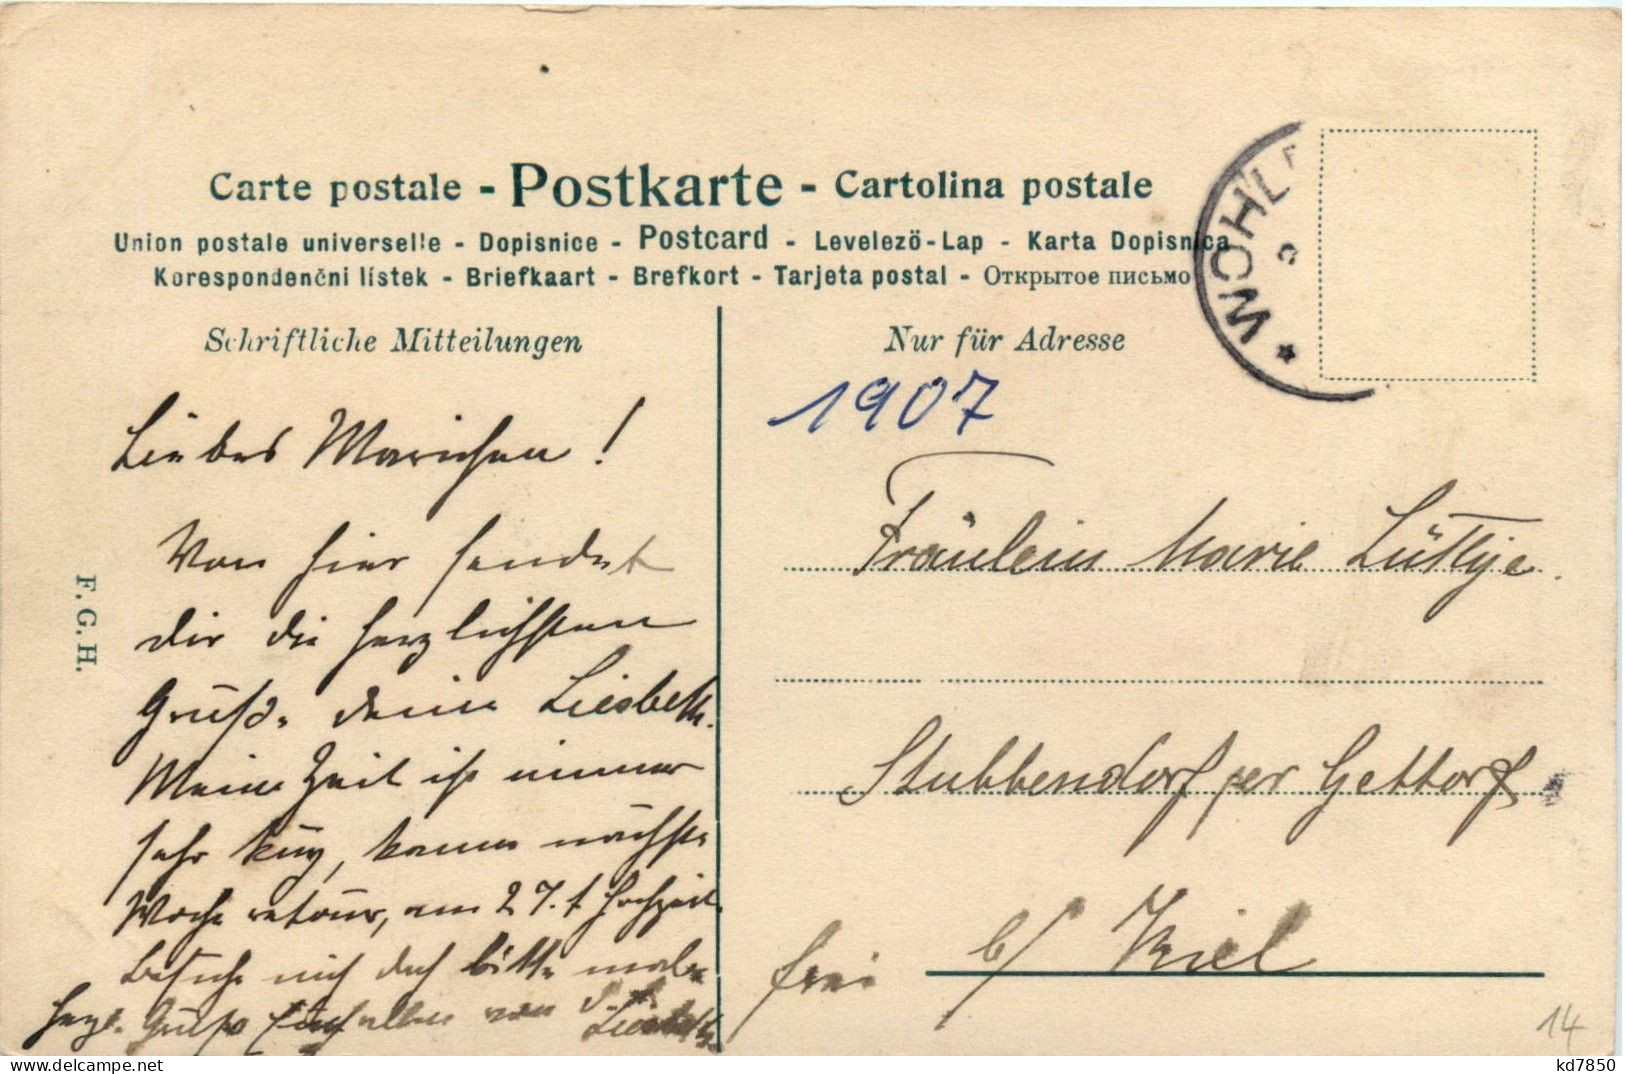 Carte postale - Postkarte - Cartolina postale
Union postale universelle - Dopisnice - Postcard - Levelezö-Lap - Karta Dopisnica
Korespondenční lístek - Briefkaart - Brefkort - Tarjeta postal - Открытое письмо
WOHL
Schriftliche Mitteilungen
Nur für Adresse
1907
Liebes Mariechen!
Von hier sendet
dir die herzlichsten
Grüße deine Liesbeth.
Meine Zeit ist immer
sehr kurz, komme nächste
Woche retour, am 27. Hochzeit.
Besuche mich doch bitte mal.
Herzl. Grüße Euch allen von
Liesbeth
F. G. H.
Fräulein Marie Lüttje.
Stubbendorf per Gettorf
b/ Kiel
frei
14
kd7850